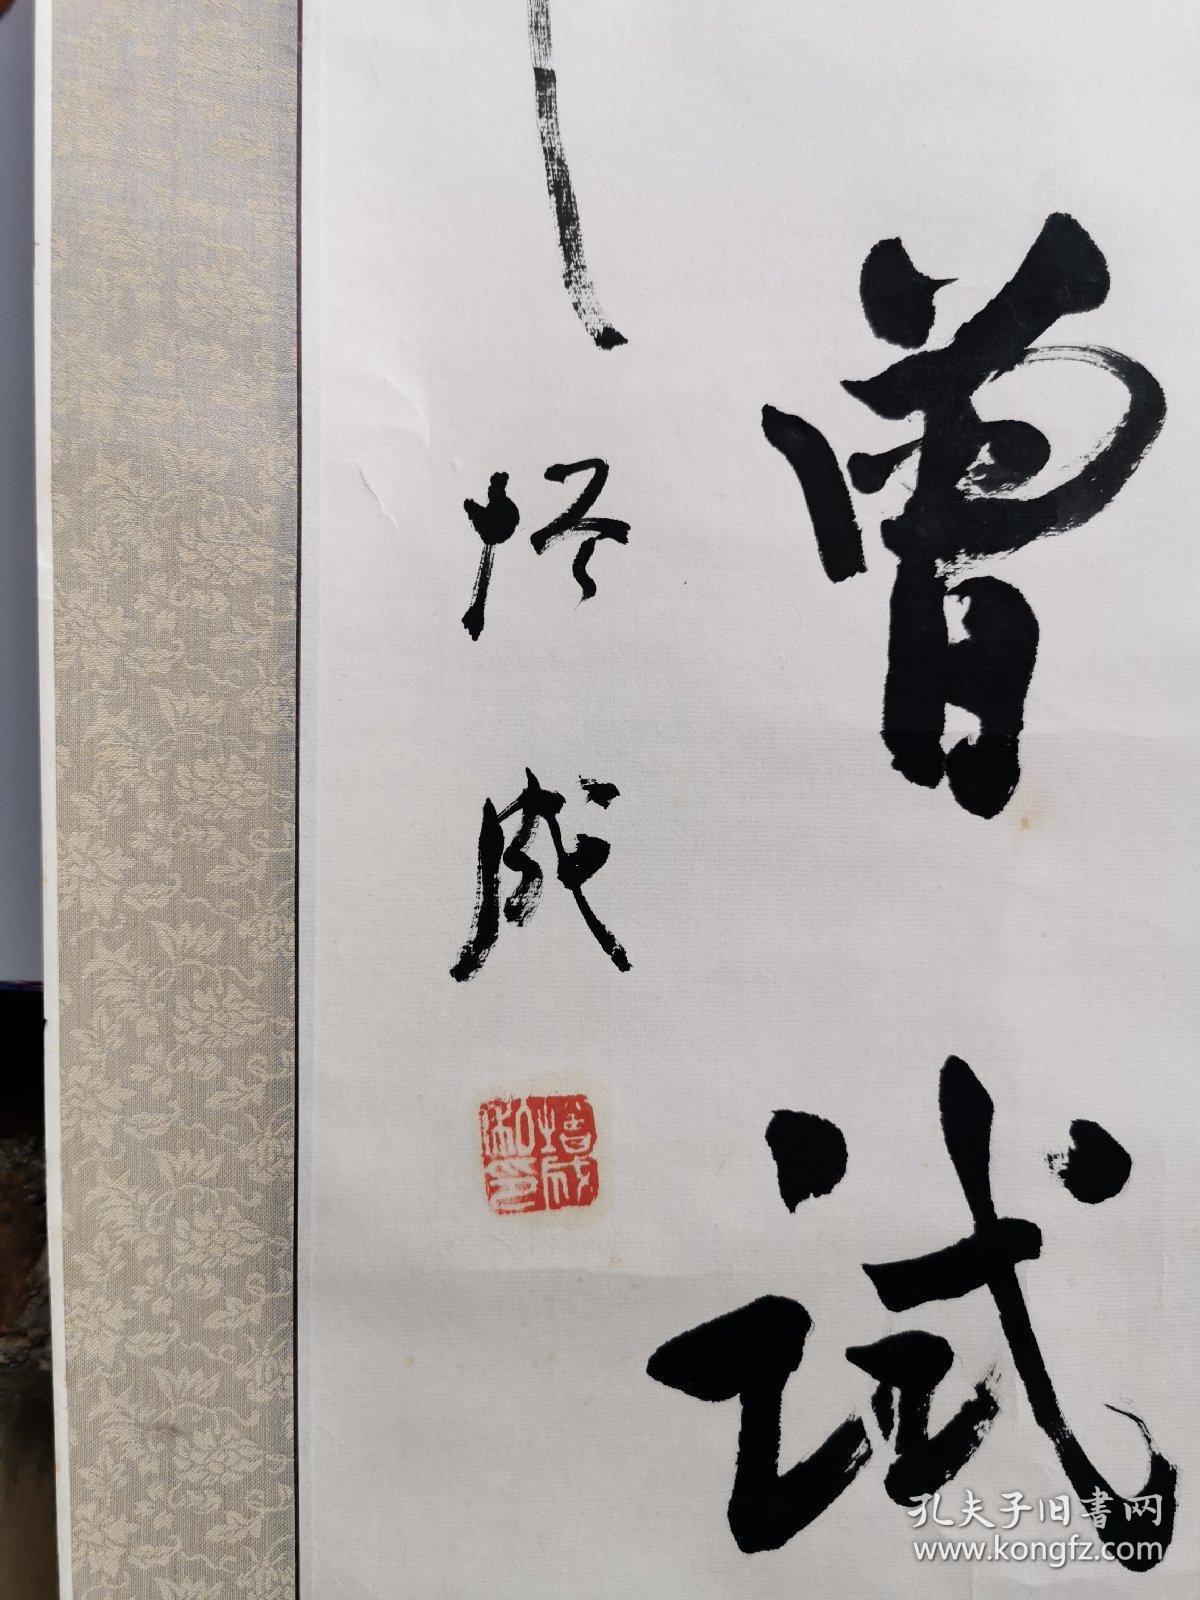 曾试
培成
培成私印
孔夫子旧书网
www.kongfz.com